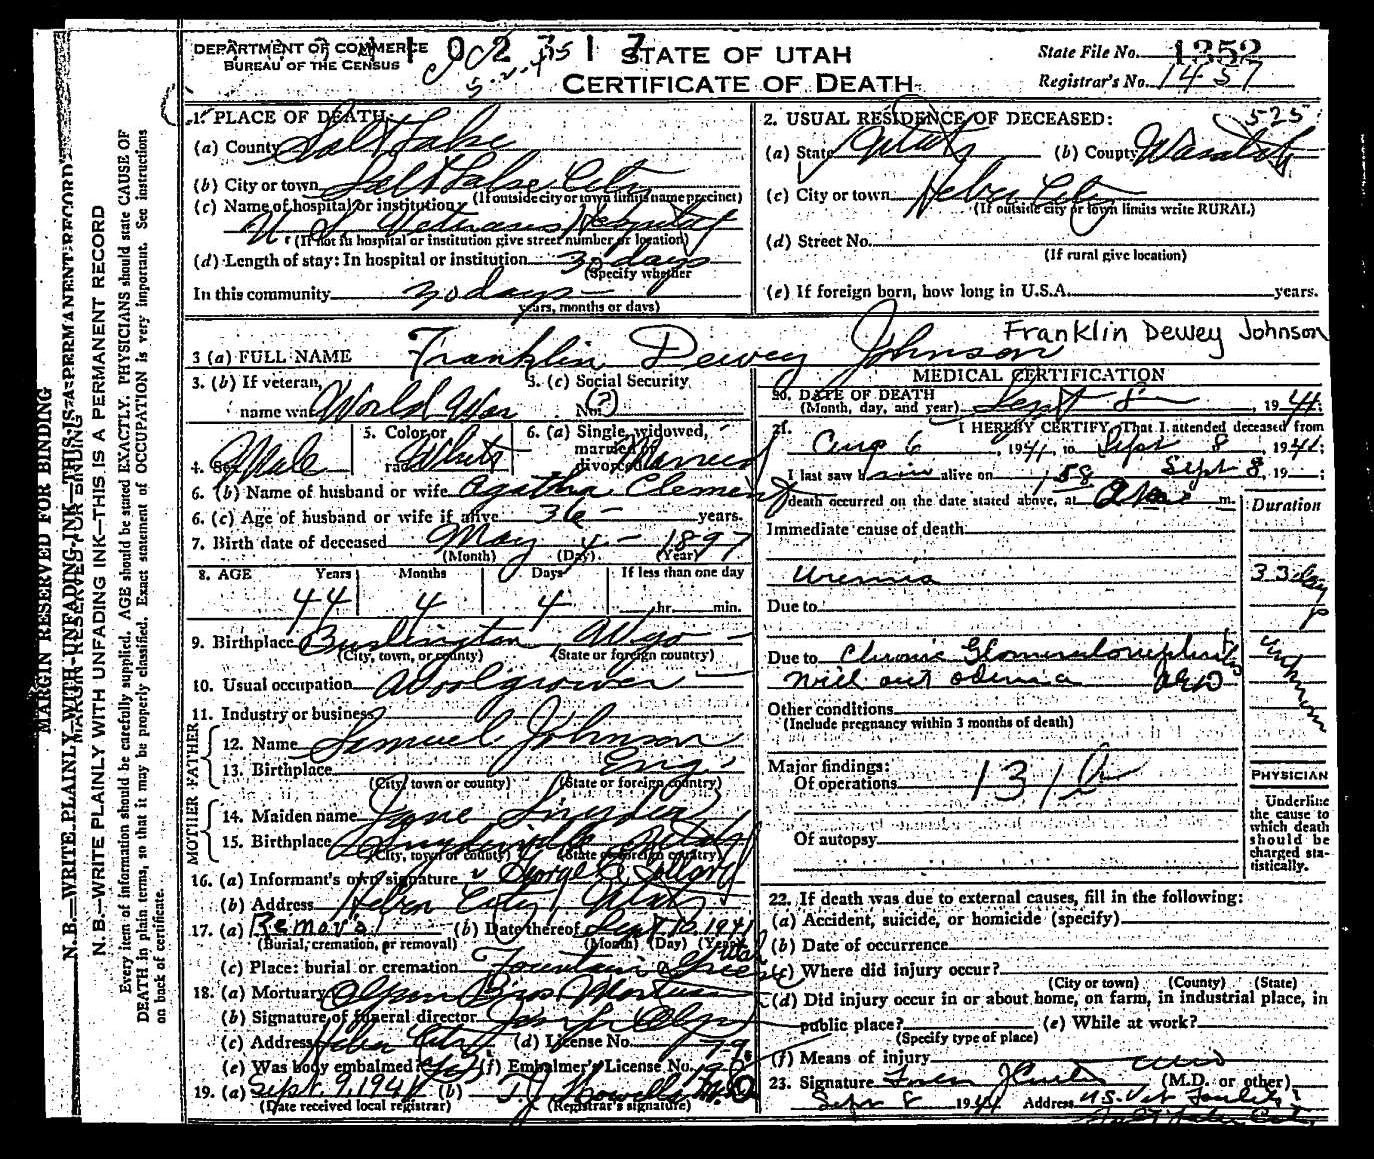 DEPARTMENT OF COMMERCE
BUREAU OF THE CENSUS
STATE OF UTAH
CERTIFICATE OF DEATH
State File No. 1352
Registrar's No. 1457
1. PLACE OF DEATH:
(a) County Salt Lake
(b) City or town Salt Lake City
(If outside city or town limits name precinct)
(c) Name of hospital or institution:
U. S. Veterans Hospital
(If not in hospital or institution give street number or location)
(d) Length of stay: In hospital or institution 30 days
(Specify whether
In this community 30 days
years, months or days)
2. USUAL RESIDENCE OF DECEASED: 525
(a) State Utah (b) County Wasatch
(c) City or town Heber City
(If outside city or town limits write RURAL)
(d) Street No.
(If rural give location)
(e) If foreign born, how long in U.S.A. years.
3 (a) FULL NAME Franklin Dewey Johnson Franklin Dewey Johnson
3. (b) If veteran, name war World War
3. (c) Social Security No. (?)
4. Sex Male
5. Color or race White
6. (a) Single, widowed, married, divorced Married
6. (b) Name of husband or wife Agatha Clement
6. (c) Age of husband or wife if alive 36 years.
7. Birth date of deceased May 4 1897
(Month) (Day) (Year)
8. AGE Years Months Days If less than one day
44 4 4 hr. min.
9. Birthplace Burlington Wyo
(City, town, or county) (State or foreign country)
10. Usual occupation Woolgrower
11. Industry or business
FATHER
12. Name Samuel Johnson
13. Birthplace Eng.
(City, town or county) (State or foreign country)
MOTHER
14. Maiden name Jane Snyder
15. Birthplace Snyderville Utah
(City, town or county) (State or foreign country)
16. (a) Informant's own signature George
(b) Address Heber City Utah
17. (a) Removal (b) Date thereof Sept. 10, 1941
(Burial, cremation, or removal) (Month) (Day) (Year)
(c) Place: burial or cremation Fountain Green Utah
18. (a) Mortuary Olpin Bros Mortuary
(b) Signature of funeral director Olpin
(c) Address Heber City (d) License No.
(e) Was body embalmed? Yes (f) Embalmer's License No.
19. (a) Sept. 9, 1941 (b) T. J. Howells M.D.
(Date received local registrar) (Registrar's signature)
MEDICAL CERTIFICATION
20. DATE OF DEATH
(Month, day, and year) Sept 8, 1941;
21. I HEREBY CERTIFY, That I attended deceased from
Aug 6, 1941, to Sept 8 1941;
I last saw him alive on Sept 8, 19 ;
death occurred on the date stated above, at 1 58 a m.
Duration
Immediate cause of death
Uremia 33 days
Due to
Due to Chronic Glomerulonephritis unknown
with out edema
Other conditions
(Include pregnancy within 3 months of death)
Major findings:
Of operations 131
Of autopsy
PHYSICIAN
Underline the cause to which death should be charged statistically.
22. If death was due to external causes, fill in the following:
(a) Accident, suicide, or homicide (specify)
(b) Date of occurrence
(c) Where did injury occur?
(City or town) (County) (State)
(d) Did injury occur in or about home, on farm, in industrial place, in
public place? (e) While at work?
(Specify type of place)
(f) Means of injury
23. Signature (M.D. or other)
Sept 8 1941 Address U.S. Vet
Salt Lake City
MARGIN RESERVED FOR BINDING
N. B.—WRITE PLAINLY WITH UNFADING INK—THIS IS A PERMANENT RECORD
N. B.—WRITE PLAINLY WITH UNFADING INK—THIS IS A PERMANENT RECORD
Every item of information should be carefully supplied. AGE should be stated EXACTLY. PHYSICIANS should state CAUSE OF
DEATH in plain terms, so that it may be properly classified. Exact statement of OCCUPATION is very important. See instructions
on back of certificate.